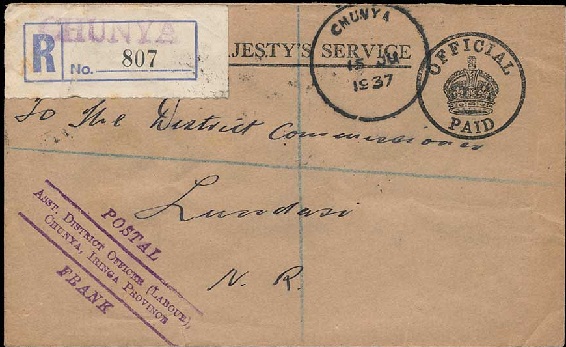 CHUNYA
R
No. 807
JESTY'S SERVICE
CHUNYA
1937
OFFICIAL
PAID
To The District Commissioner
Lundasi
N. R.
POSTAL
ASST. DISTRICT OFFICER (LABOUR),
CHUNYA, IRINGA PROVINCE
FRANK